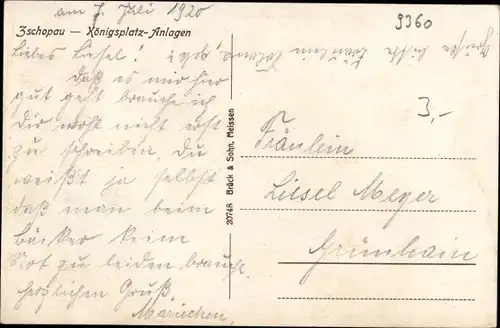 am 7. Juli 1920
Zschopau — Königsplatz-Anlagen
Liebes Liesel!
Daß es mir hier
gut geht brauche ich
Dir wohl nicht erst
zu schreiben. Du
weißt ja selbst
daß man beim
Bäcker keine
Not zu leiden braucht.
Herzlichen Gruß,
Mariechen.
Grüße bitte Fräulein
20748 Brück & Sohn, Meissen
9360
3,-
Fräulein
Liesel Meyer
Grünhain